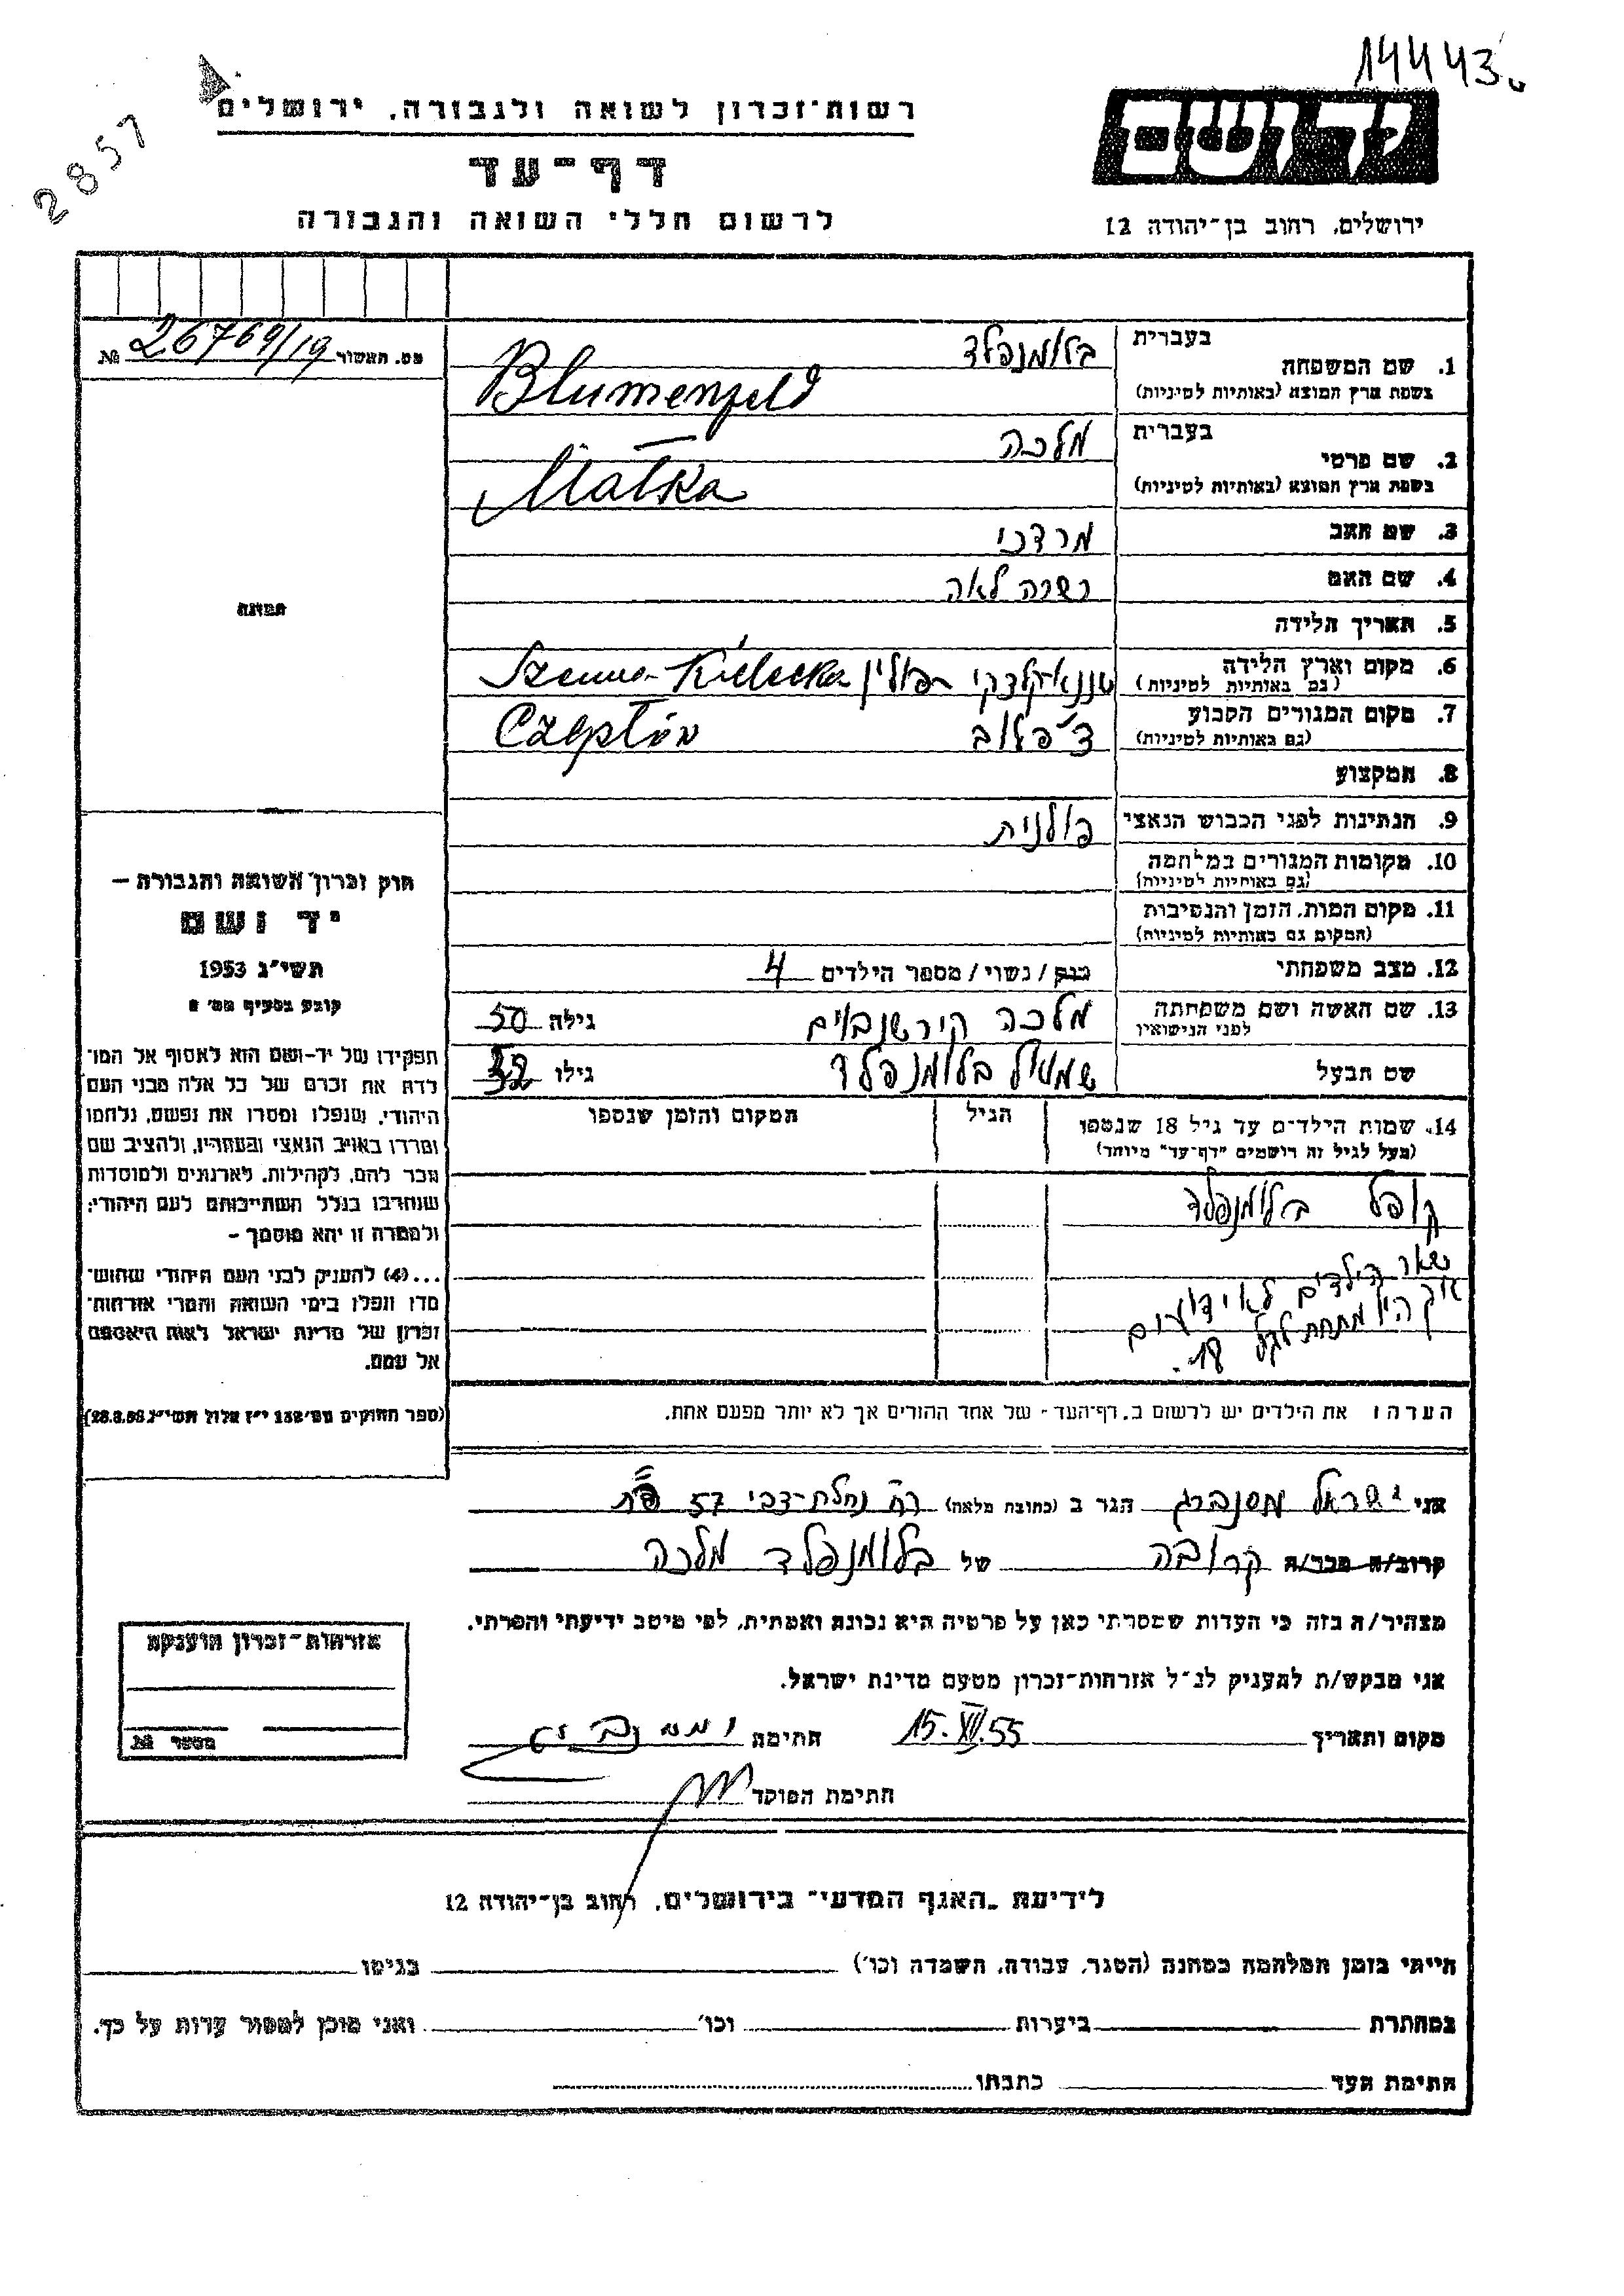 14443
2857
רשות־זכרון לשואה ולגבורה, ירושלים
דף־עד
לרשום חללי השואה והגבורה
יד ושם
ירושלים, רחוב בן־יהודה 12
מס. האשור 26769/19 №
1. שם המשפחה
בעברית בלומנפלד
בשפת ארץ המוצא (באותיות לטיניות) Blumenfeld
2. שם פרטי
בעברית מלכה
בשפת ארץ המוצא (באותיות לטיניות) Malka
3. שם האב מרדכי
4. שם האם לאה
5. תאריך הלידה
6. מקום וארץ הלידה
(גם באותיות לטיניות) פולין Kielecka
7. מקום המגורים הקבוע
(גם באותיות לטיניות)
8. המקצוע
9. הנתינות לפני הכבוש הנאצי פולנית
10. מקומות המגורים במלחמה
(גם באותיות לטיניות)
11. מקום המות, הזמן והנסיבות
(המקום גם באותיות לטיניות)
12. מצב משפחתי רווק / נשוי / מספר הילדים 4
13. שם האשה ושם משפחתה
לפני הנישואין מלכה קירשנבוים גילה 50
שם הבעל בלומנפלד גילו 52
14. שמות הילדים עד גיל 18 שנספו
(מעל לגיל זה רושמים "דף־עד" מיוחד)
הגיל
המקום והזמן שנספו
קופל בלומנפלד
שאר הילדים לא ידועים
אך היו מתחת לגיל 18.
הערה: את הילדים יש לרשום ב„דף־העד״ של אחד ההורים אך לא יותר מפעם אחת.
תמונה
חוק זכרון השואה והגבורה –
יד ושם
תשי"ג 1953
קובע בסעיף מס' 2
תפקידו של יד־ושם הוא לאסוף אל המו־
לדת את זכרם של כל אלה מבני העם
היהודי, שנפלו ומסרו את נפשם, נלחמו
ומרדו באויב הנאצי ובעוזריו, ולהציב שם
וזכר להם, לקהילות, לארגונים ולמוסדות
שנחרבו בגלל השתייכותם לעם היהודי;
ולמטרה זו יהא מוסמך –
...(4) להעניק לבני העם היהודי שהוש־
מדו ונפלו בימי השואה והמרי אזרחות־
זכרון של מדינת ישראל לאות היאספם
אל עמם.
(ספר החוקים מס' 132 י"ז אלול תשי"ג, 28.8.53)
אני ישראל הגר ב (כתובת מלאה) 57
קרוב/ה מכר/ה קרובה של בלומנפלד מלכה
מצהיר/ה בזה כי העדות שמסרתי כאן על פרטיה היא נכונה ואמתית, לפי מיטב ידיעתי והכרתי.
אני מבקש/ת להעניק לנ"ל אזרחות־זכרון מטעם מדינת ישראל.
מקום ותאריך 15.XII.55 חתימה
חתימת הפוקד
אזרחות־זכרון הוענקה
מספר №
לידיעת „האגף המדעי״ בירושלים, רחוב בן־יהודה 12
הייתי בזמן המלחמה במחנה (הסגר, עבודה, השמדה וכו') בגיטו
במחתרת ביערות וכו' ואני מוכן למסור עדות על כך.
חתימת העד כתבתו